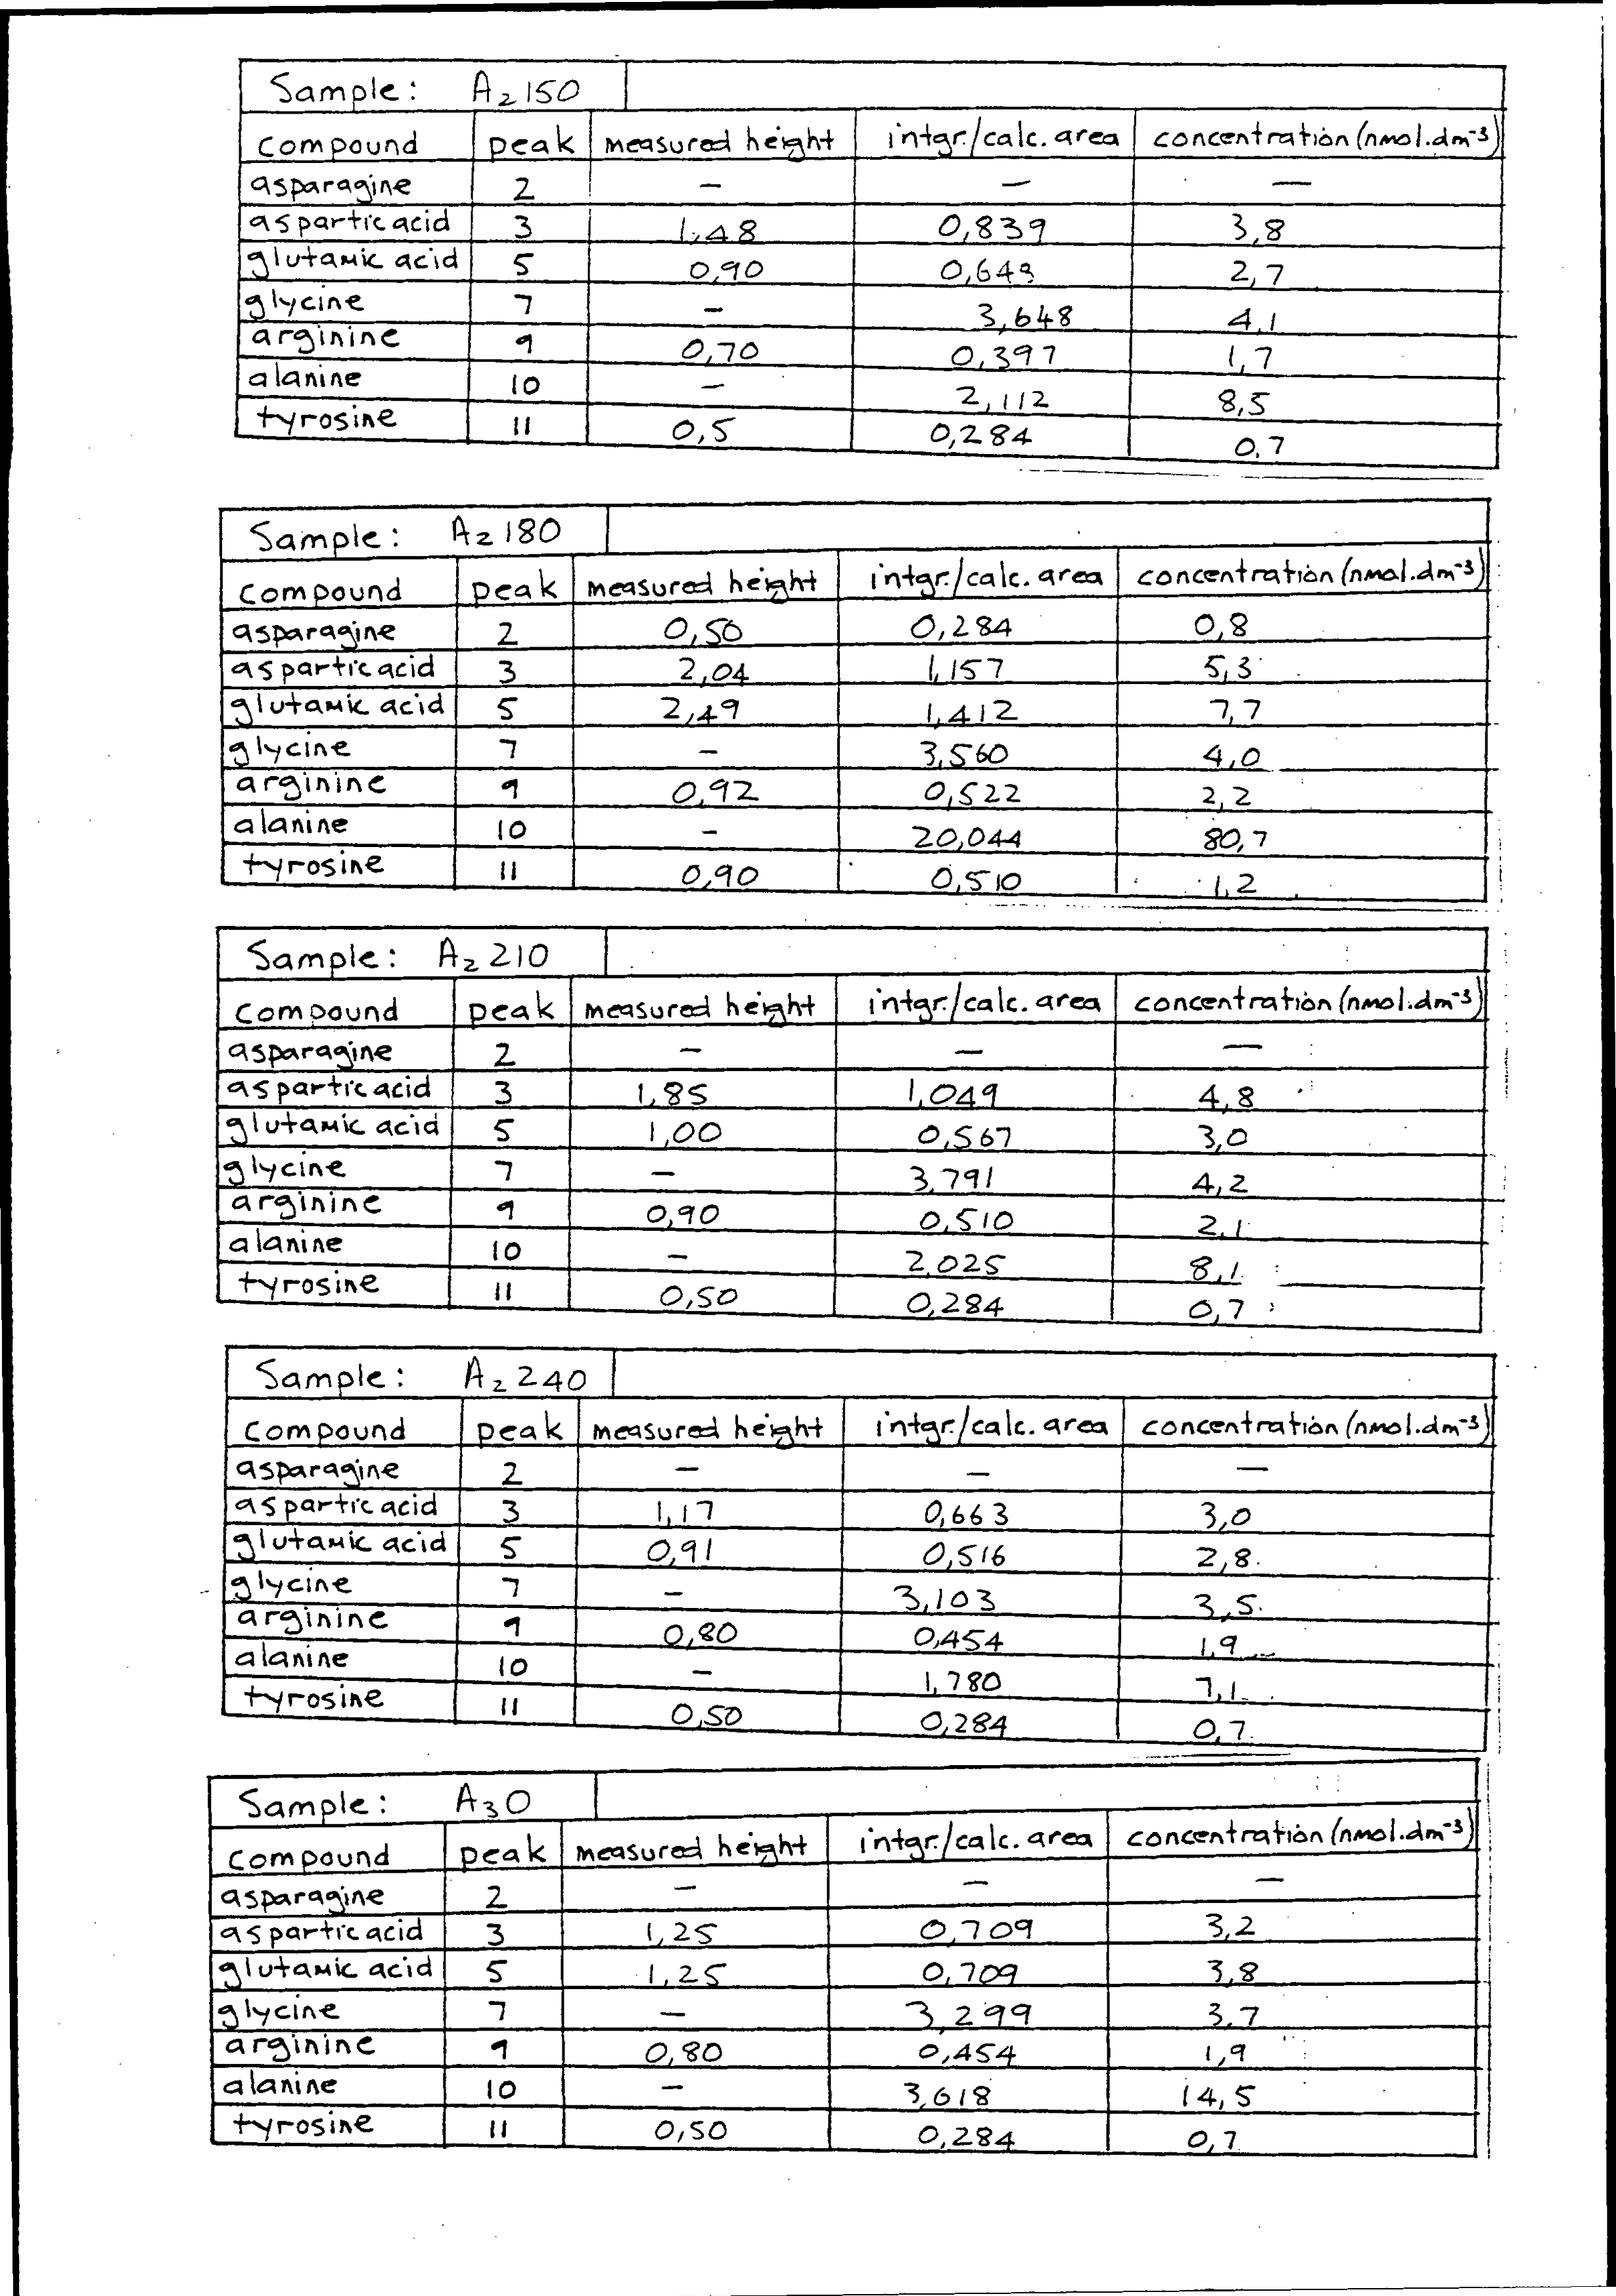 Sample: A₂150
compound peak measured height intgr./calc. area concentration (nmol.dm⁻³)
asparagine 2 – – –
aspartic acid 3 1,48 0,839 3,8
glutamic acid 5 0,90 0,643 2,7
glycine 7 – 3,648 4,1
arginine 9 0,70 0,397 1,7
alanine 10 – 2,112 8,5
tyrosine 11 0,5 0,284 0,7
Sample: A₂180
compound peak measured height intgr./calc. area concentration (nmol.dm⁻³)
asparagine 2 0,50 0,284 0,8
aspartic acid 3 2,04 1,157 5,3
glutamic acid 5 2,49 1,412 7,7
glycine 7 – 3,560 4,0
arginine 9 0,92 0,522 2,2
alanine 10 – 20,044 80,7
tyrosine 11 0,90 0,510 1,2
Sample: A₂210
compound peak measured height intgr./calc. area concentration (nmol.dm⁻³)
asparagine 2 – – –
aspartic acid 3 1,85 1,049 4,8
glutamic acid 5 1,00 0,567 3,0
glycine 7 – 3,791 4,2
arginine 9 0,90 0,510 2,1
alanine 10 – 2,025 8,1
tyrosine 11 0,50 0,284 0,7
Sample: A₂240
compound peak measured height intgr./calc. area concentration (nmol.dm⁻³)
asparagine 2 – – –
aspartic acid 3 1,17 0,663 3,0
glutamic acid 5 0,91 0,516 2,8
glycine 7 – 3,103 3,5
arginine 9 0,80 0,454 1,9
alanine 10 – 1,780 7,1
tyrosine 11 0,50 0,284 0,7
Sample: A₃0
compound peak measured height intgr./calc. area concentration (nmol.dm⁻³)
asparagine 2 – – –
aspartic acid 3 1,25 0,709 3,2
glutamic acid 5 1,25 0,709 3,8
glycine 7 – 3,299 3,7
arginine 9 0,80 0,454 1,9
alanine 10 – 3,618 14,5
tyrosine 11 0,50 0,284 0,7